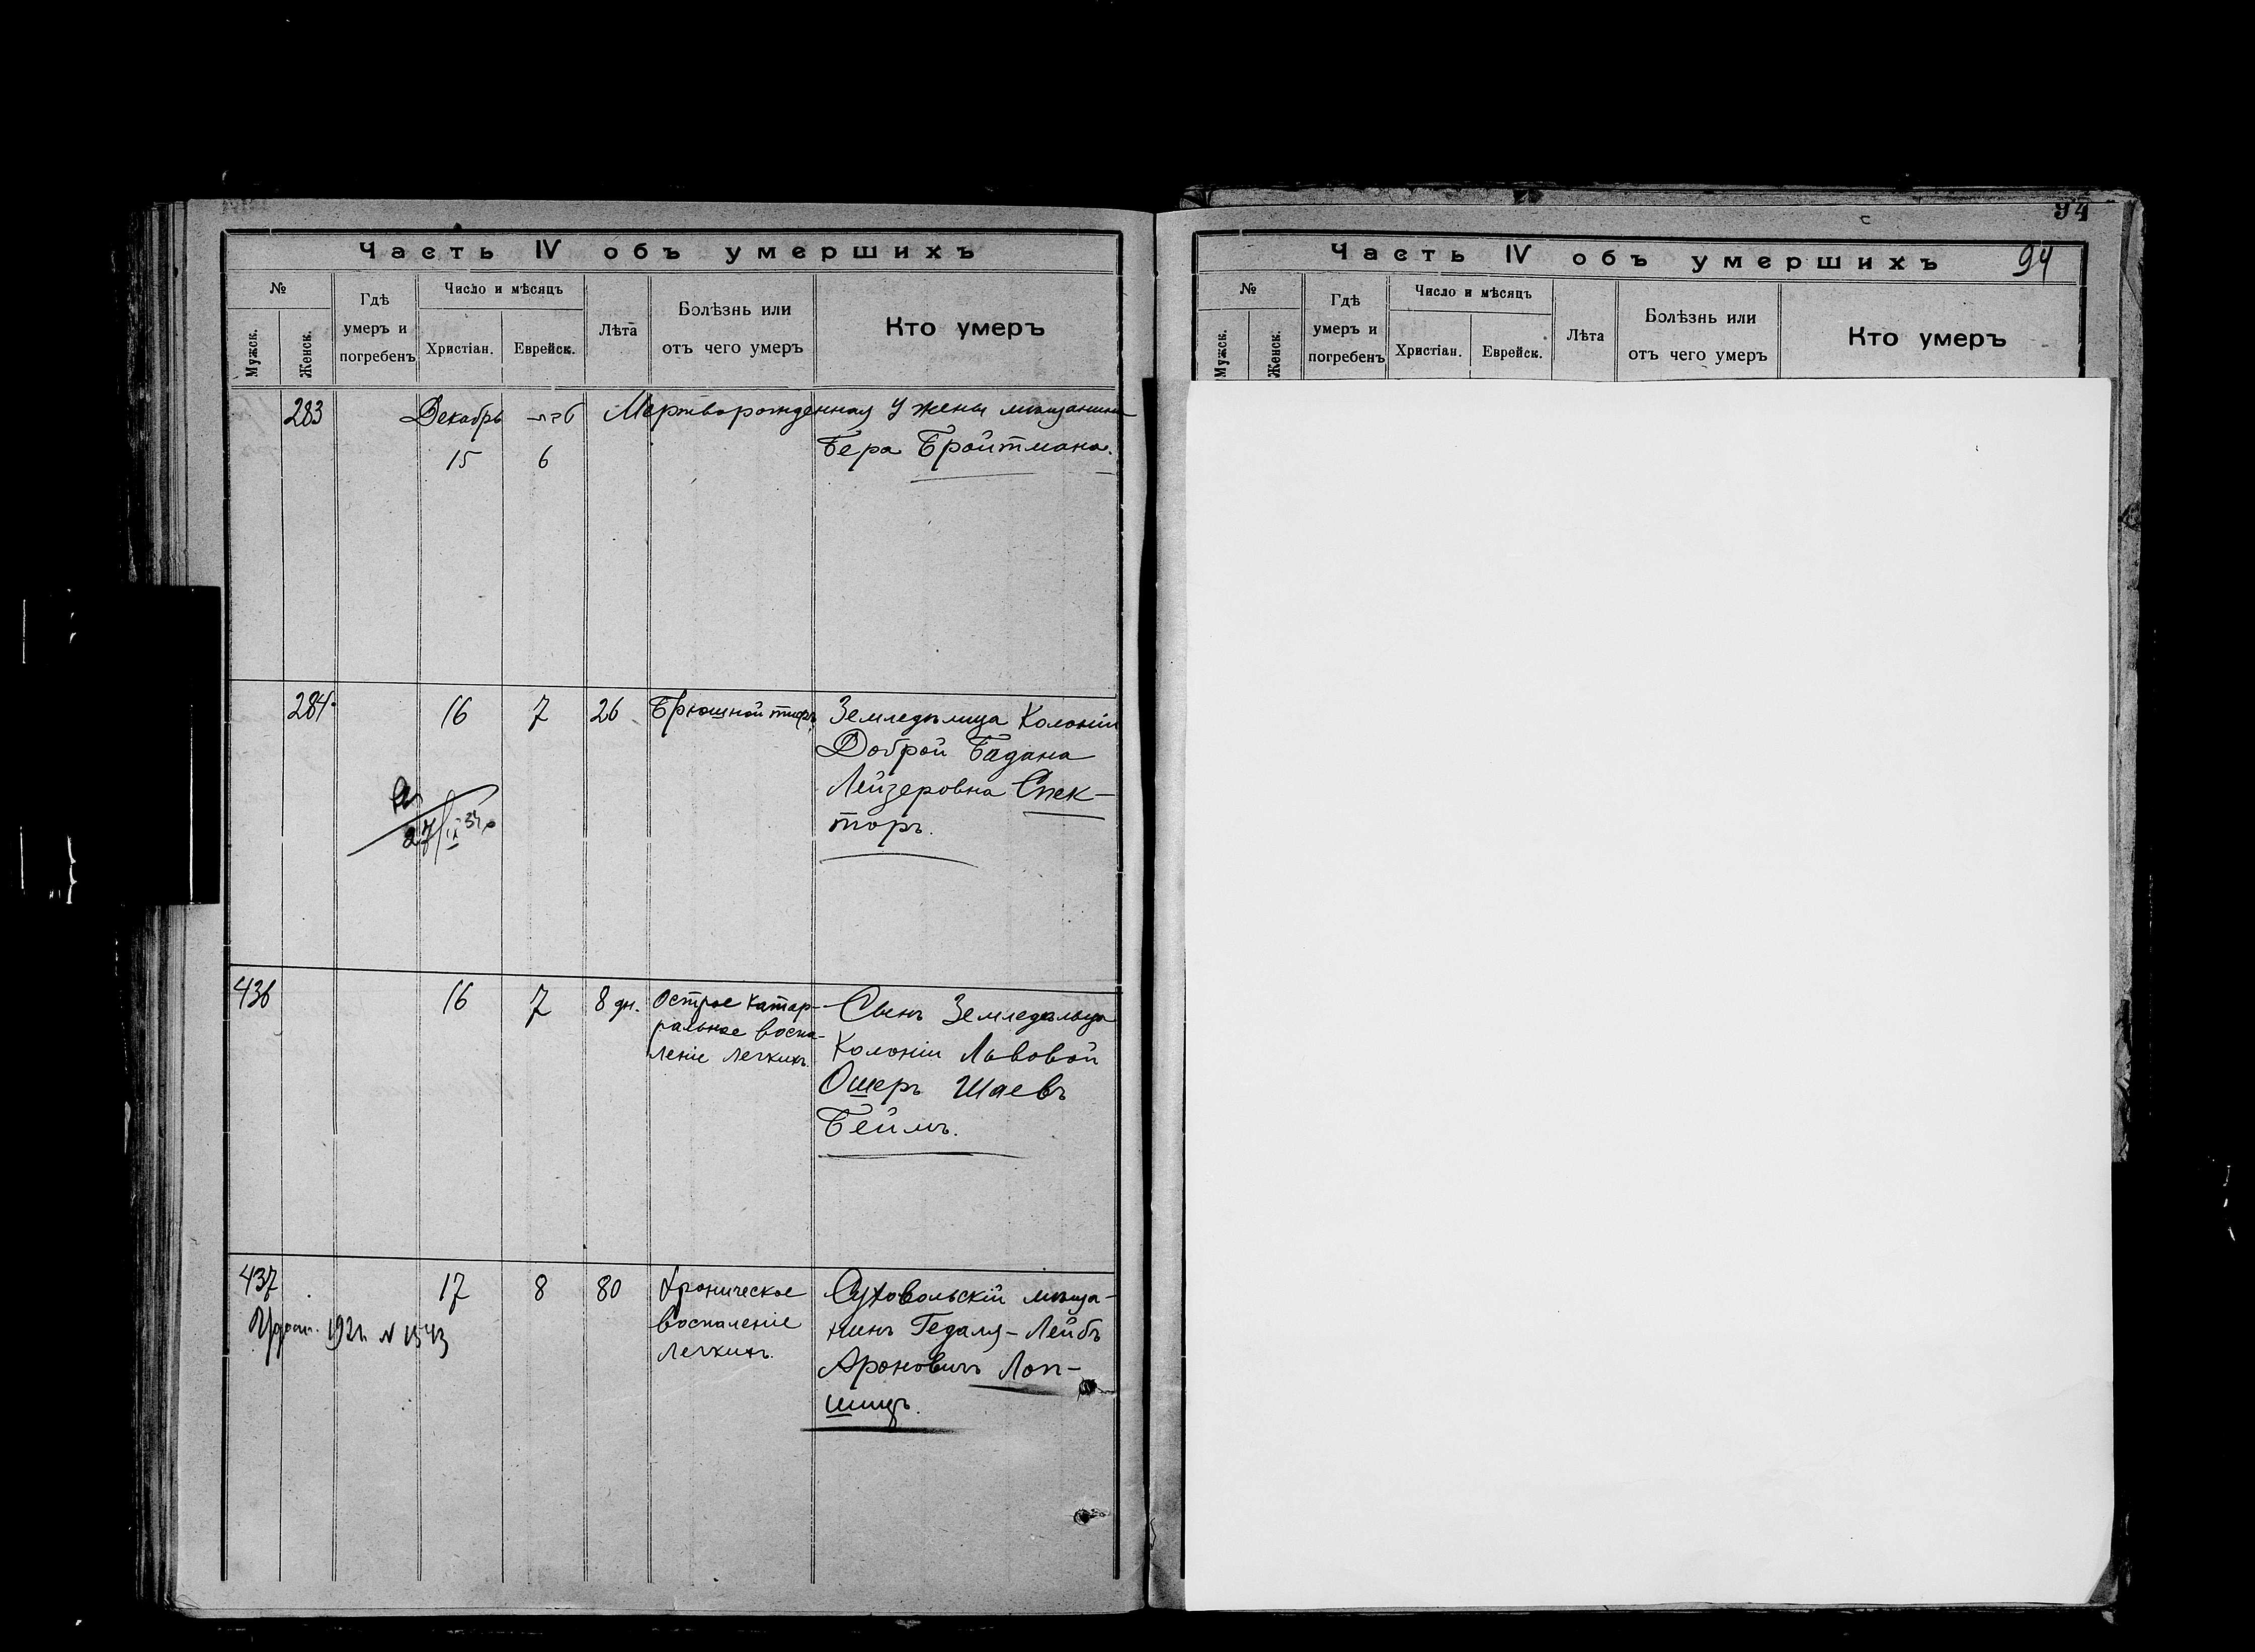 Часть IV объ умершихъ
№
Мужск.
Женск.
Гдѣ
умеръ и
погребенъ
Число и мѣсяцъ
Христіан.
Еврейск.
Лѣта
Болѣзнь или
отъ чего умеръ
Кто умеръ
283
Декабрь
15
טבת
6
Мертворожденная у жены мѣщанина
Бера Бройтмана.
284
16
7
26
Брюшной тифъ
Земледѣлица Колоніи
Доброй Бадана
Лейзеровна Спек-
торъ.
27/IX 34
436
16
7
8 дн.
Острое катар-
ральное воспа-
леніе легкихъ.
Сынъ Земледѣльца
Колоніи Львовой
Ошеръ Шаевъ
Беймъ.
437
1921 № 1543
17
8
80
Хроническое
воспаленіе
легкихъ.
Суховольскій мѣща-
нинъ Гедаля-Лейбъ
Ароновичъ Лоп-
шицъ.
94
Часть IV объ умершихъ
94
№
Мужск.
Женск.
Гдѣ
умеръ и
погребенъ
Число и мѣсяцъ
Христіан.
Еврейск.
Лѣта
Болѣзнь или
отъ чего умеръ
Кто умеръ